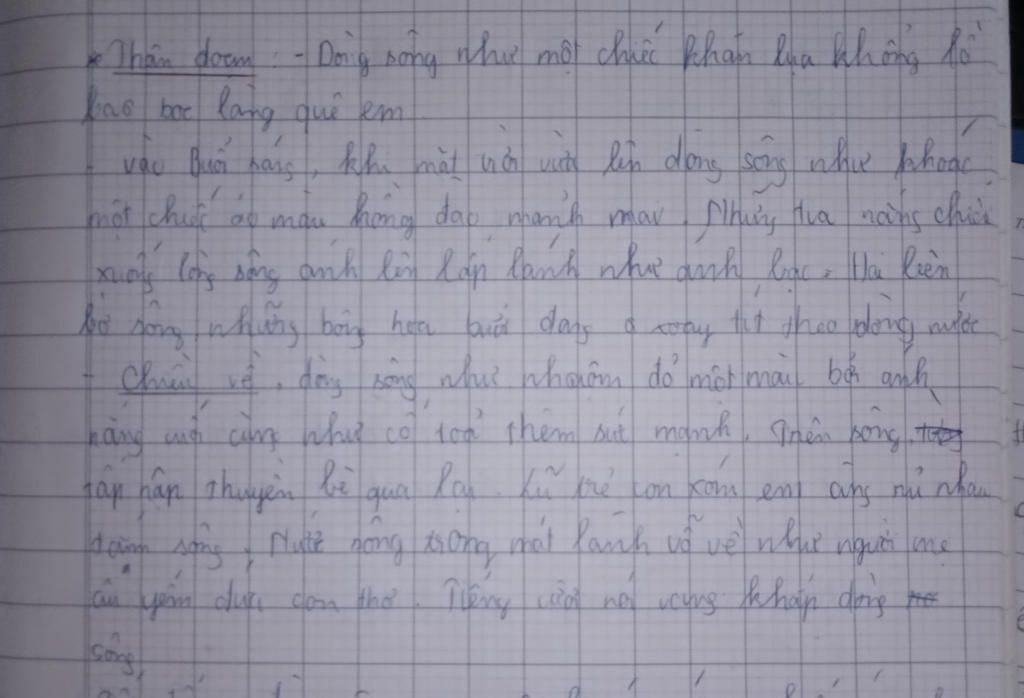 * Thân đoạn : - Dòng sông như một chiếc khăn lụa khổng lồ
bao bọc làng quê em
- vào buổi sáng, khi mặt trời vừa lên dòng sông như khoác
một chiếc áo màu hồng đào mảnh mai. Những tia nắng chiếu
xuống lòng sông ánh lên lấp lánh như ánh bạc. Hai liên
bờ sông, những bông hoa bưởi đang xoay tít theo dòng nước
- Chiều về, dòng sông như nhuộm đỏ một màu bởi ánh
nắng cuối cùng như cố toả thêm sức mạnh. Trên sông,
tấp nập thuyền bè qua lại. Lũ trẻ con xóm em cũng rủ nhau
tắm sông. Nước sông trong mát lành vỗ về như người mẹ
âu yếm đứa con thơ. Tiếng cười nói vang khắp dòng
sông,